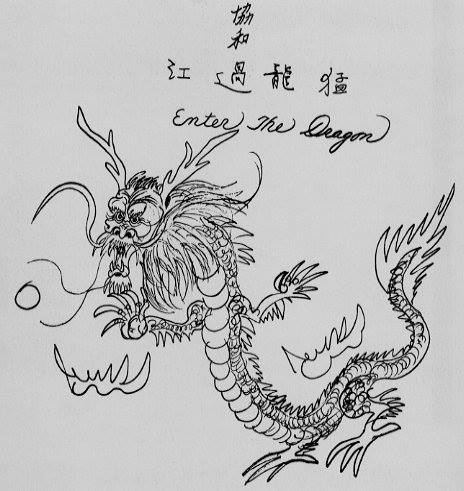 協和
猛龍過江
Enter The Dragon